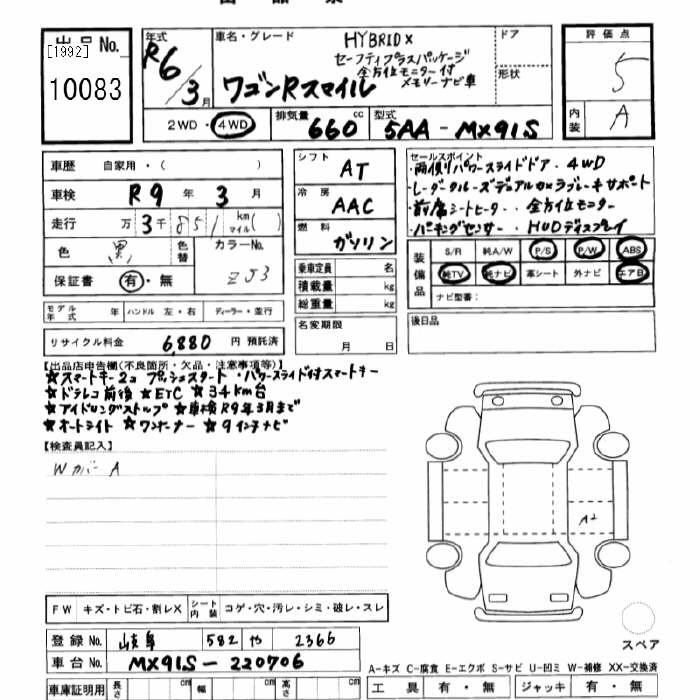 出品No. [1992] 10083
年式 R6/3月
車名・グレード HYBRID X
セーフティプラスパッケージ
全方位モニター付
メモリーナビ車
ワゴンRスマイル
ドア
形状
評価点 5
内装 A
2WD・4WD 排気量 660cc 型式 5AA-MX91S
車歴 自家用・( )
車検 R9年3月
走行 万3千851km マイル( )
色 黒 色替 カラーNo. ZJ3
保証書 有・無
モデル年式 年 ハンドル 左・右 ディーラー・並行
リサイクル料金 6,880円 預託済
シフト AT
冷房 AAC
燃料 ガソリン
乗車定員 名
積載量 kg
総重量 kg
名変期限
月 日
セールスポイント
・両側パワースライドドア・4WD
・レーダークルーズデュアルカメラブレーキサポート
・前席シートヒーター・全方位モニター
・パーキングセンサー・HUDディスプレイ
装備品 S/R 純A/W P/S P/W ABS
純TV 純ナビ 革シート 外ナビ エアB
ナビ型番:
後日品
【出品店申告欄(不良箇所・欠品・注意事項等)】
☆スマートキー2コ プッシュスタート・パワースライド付スマートキー
☆ドラレコ前後 ☆ETC ☆34km台
☆アイドリングストップ ☆車検R9年3月まで
☆オートライト ☆ワンオーナー ☆9インチナビ
【検査員記入】
Wカバー A
A2
FW キズ・トビ石・割レX シート内装 コゲ・穴・汚レ・シミ・破レ・スレ
登録No. 岐阜 582 や 2366
車台No. MX91S-220706
スペア
A-キズ C-腐食 E-エクボ S-サビ U-凹ミ W-補修 XX-交換済
車庫証明用 長さ cm 幅 cm 高さ cm
工具 有・無 ジャッキ 有・無